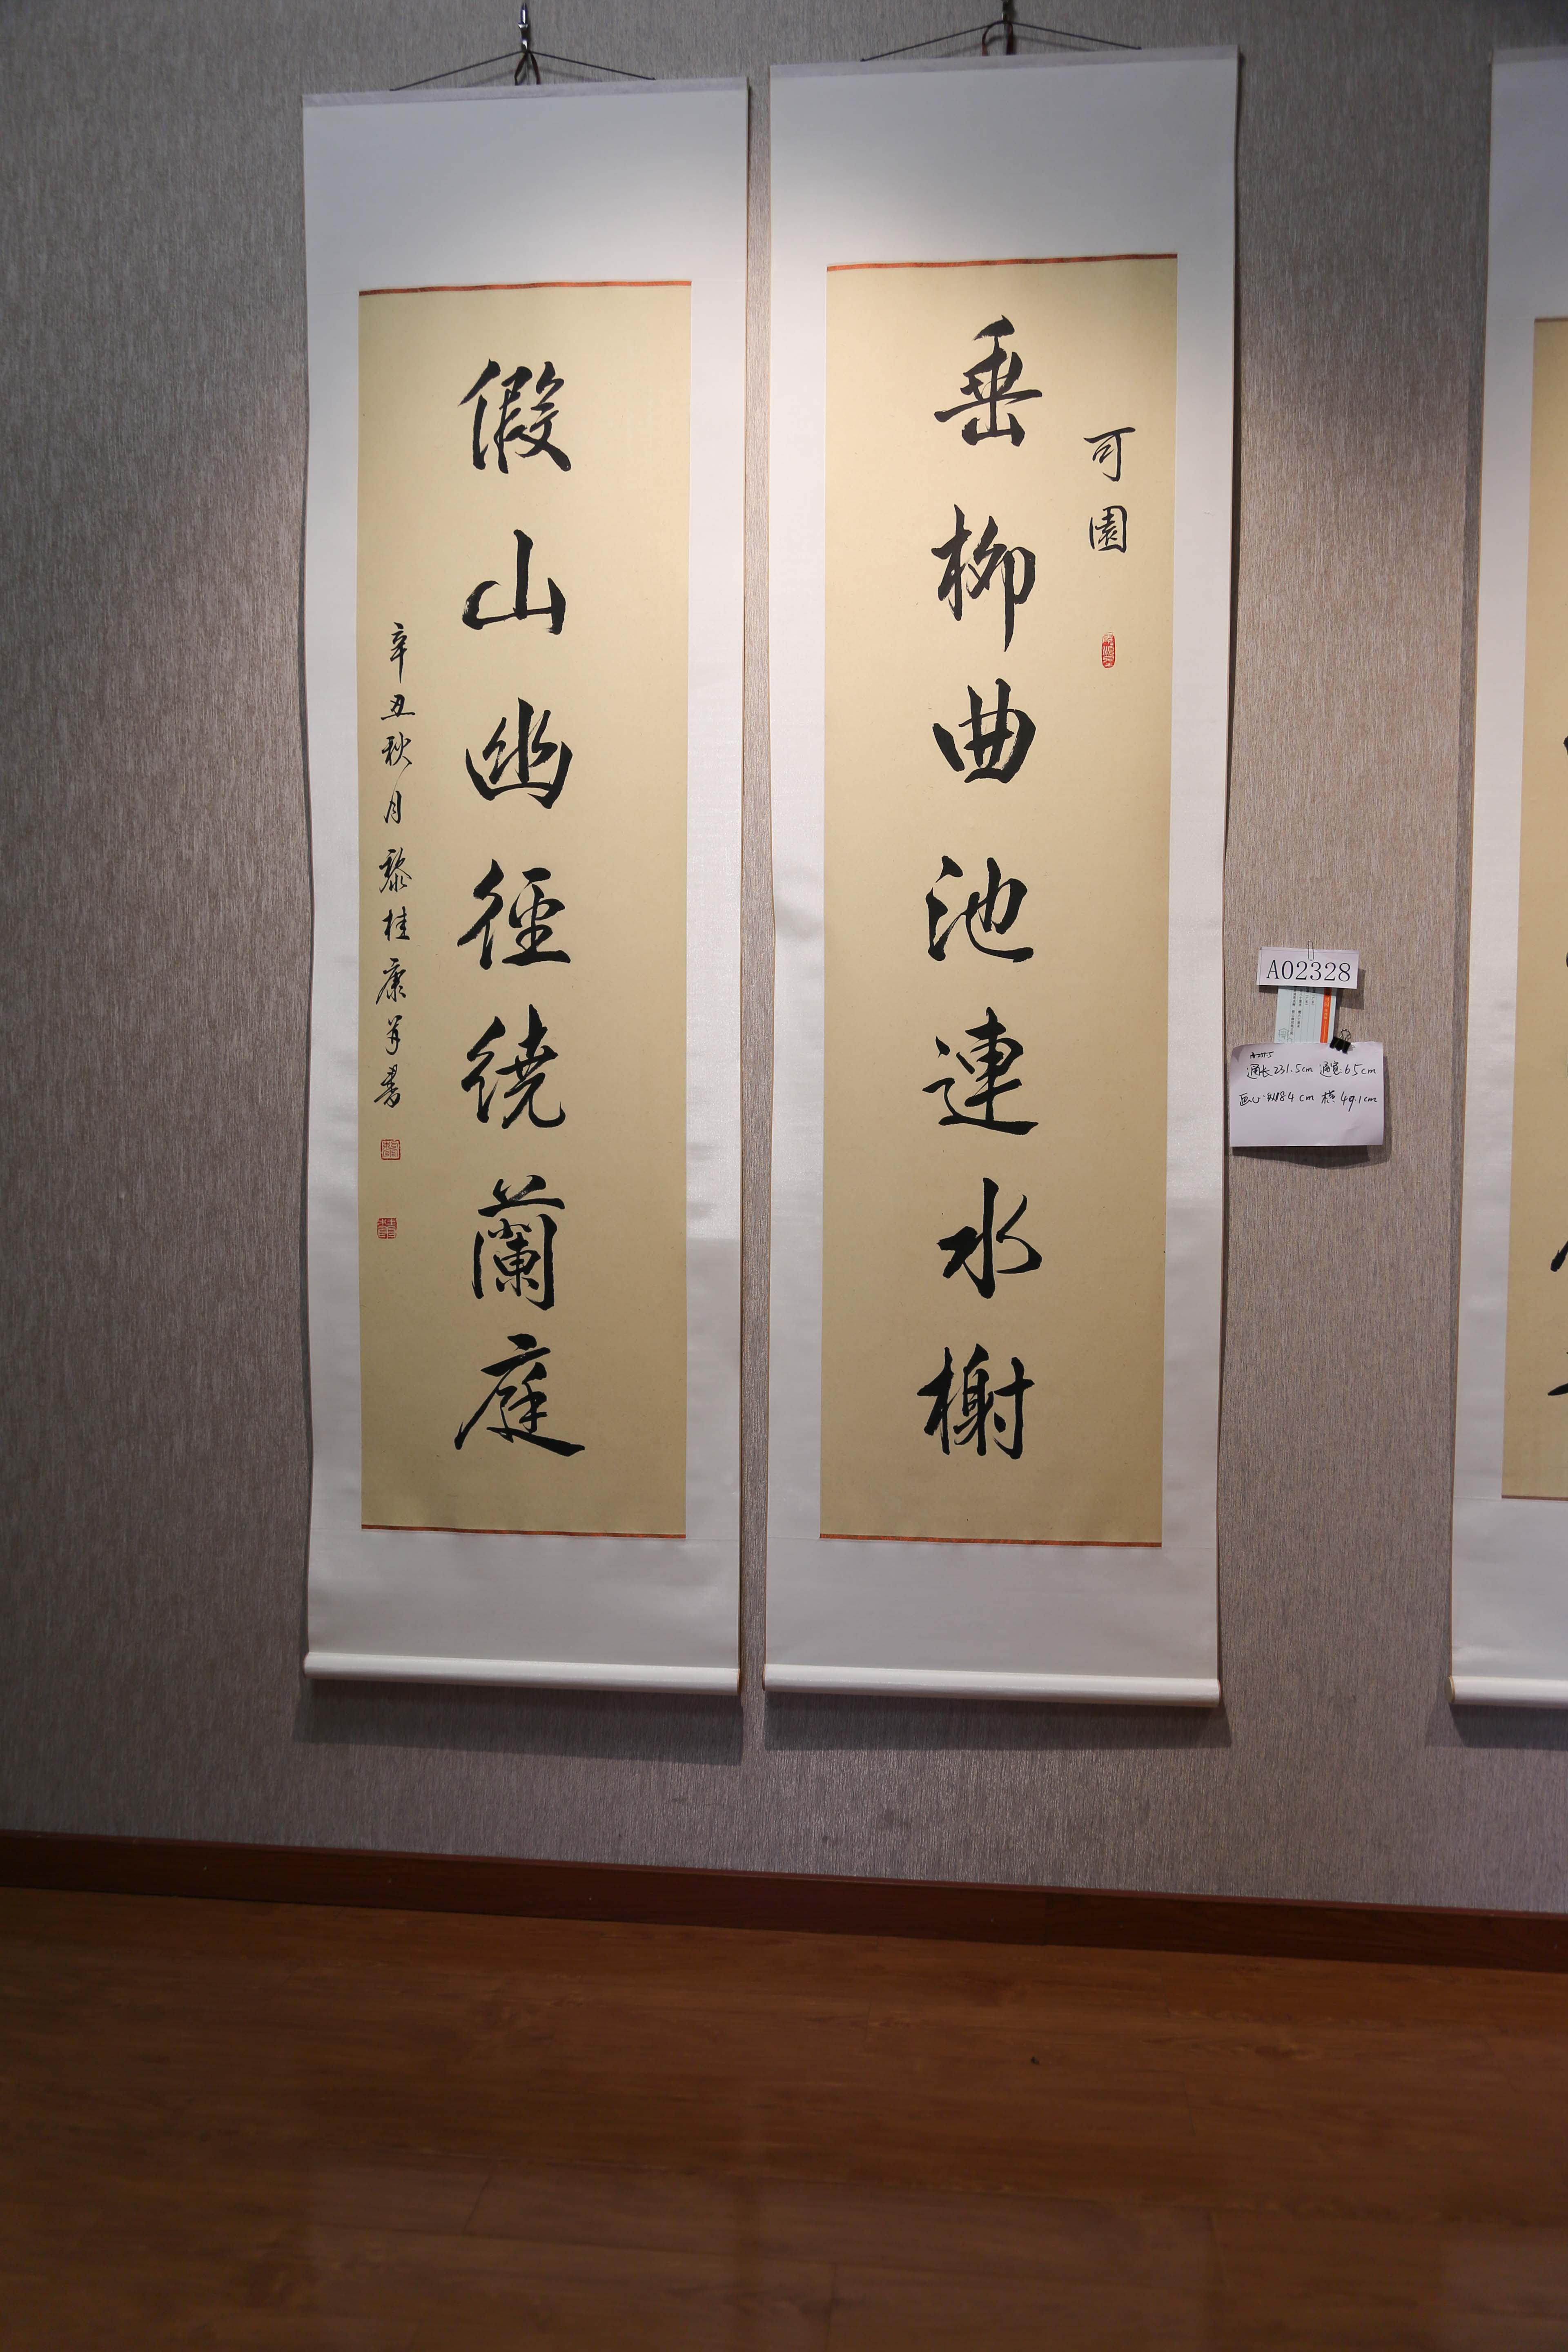 可園
垂柳曲池連水榭
假山幽徑繞蘭庭
辛丑秋月黎桂康并書
A02328
通长231.5cm 通宽65cm
画心:纵184cm 横49.1cm